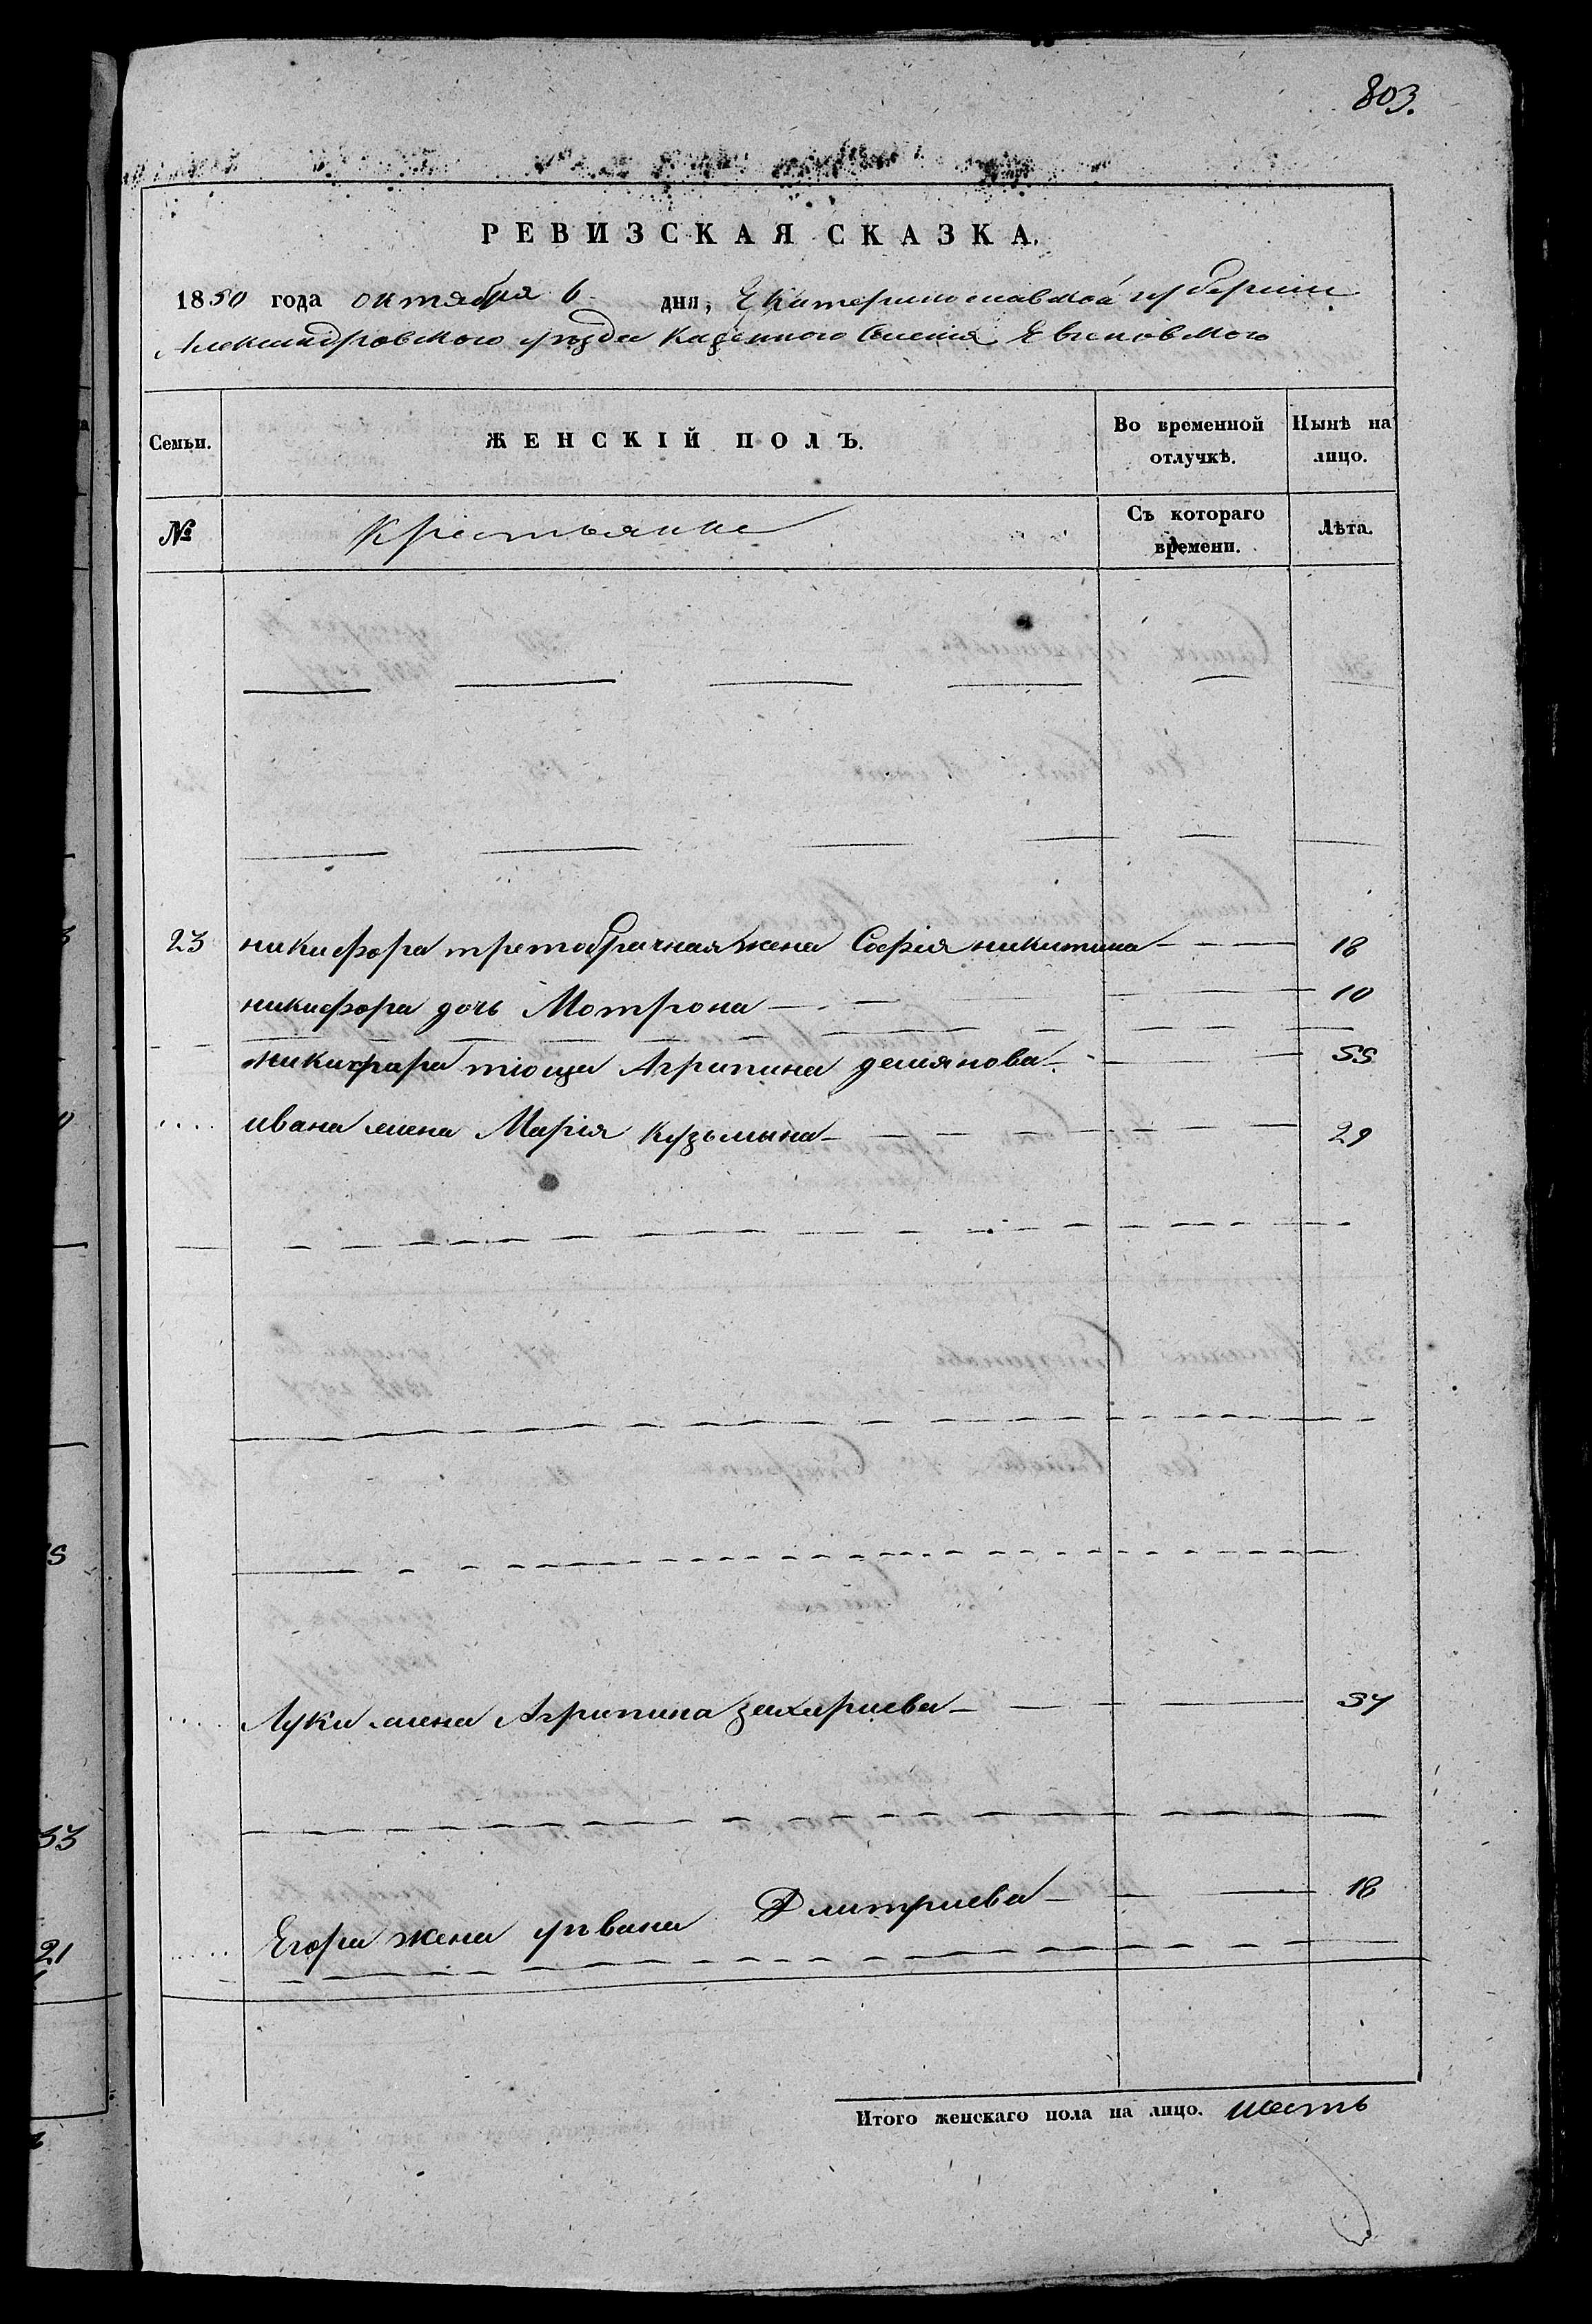 803.
РЕВИЗСКАЯ СКАЗКА.
1850 года октября 6 дня, Екатеринославской губернии
Александровского уезда Казенного Селения
Семьи.
ЖЕНСКІЙ ПОЛЪ.
Во временной отлучкѣ.
Нынѣ на лицо.
№
Крестьянне
Съ котораго времени.
Лѣта.
23 никифора третобрачная жена Софія никитина 18
никифора дочь Мотрона 10
никифара тюща Агрипина демянова 55
ивана жена Марія Кузьмына 29
Луки жена Агрипина захариева 54
Егора жена Дмитриева 18
Итого женскаго пола на лицо. шесть
33
21